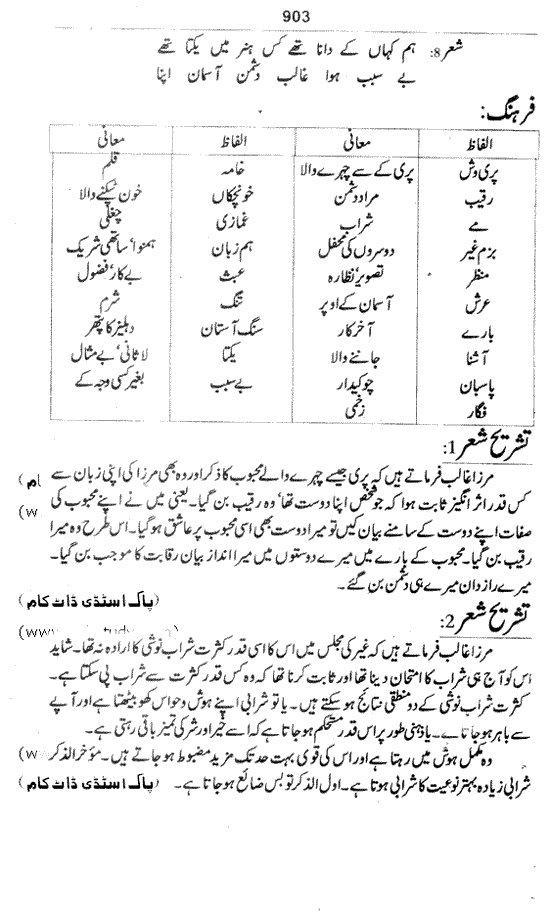 903
شعر 8: ہم کہاں کے دانا تھے کس ہنر میں یکتا تھے
بے سبب ہوا غالب دشمن آسماں اپنا
فرہنگ:
الفاظ معانی الفاظ معانی
پری وش پری کے سے چہرے والا خامہ قلم
رقیب مراد دشمن خونچکاں خون ٹپکنے والا
مے شراب غمازی چغلی
بزم غیر دوسروں کی محفل ہم زبان ہمنوا' ساتھی شریک
منظر تصویر' نظارہ عبث بے کار' فضول
عرش آسمان کے اوپر ننگ شرم
بارے آخر کار سنگ آستاں دہلیز کا پتھر
آشنا جاننے والا یکتا لاثانی' بے مثال
پاسبان چوکیدار بے سبب بغیر کسی وجہ کے
فگار زخمی
تشریح شعر 1:
مرزا غالب فرماتے ہیں کہ پری جیسے چہرے والے محبوب کا ذکر اور وہ بھی مرزا کی اپنی زبان سے
کس قدر اثر انگیز ثابت ہوا کہ جو شخص اپنا دوست تھا' وہ رقیب بن گیا۔ یعنی میں نے اپنے محبوب کی
صفات اپنے دوست کے سامنے بیان کیں تو میرا دوست بھی اسی محبوب پر عاشق ہو گیا۔ اس طرح وہ میرا
رقیب بن گیا۔ محبوب کے بارے میں میرے دوستوں میں میرا انداز بیان رقابت کا موجب بن گیا۔
میرے رازدان میرے ہی دشمن بن گئے۔
(پاک اسٹڈی ڈاٹ کام)
تشریح شعر 2:
مرزا غالب فرماتے ہیں کہ غیر کی مجلس میں اس کا اسی قدر کثرت شراب نوشی کا ارادہ نہ تھا۔ شاید
اس کو آج ہی شراب کا امتحان دینا تھا اور ثابت کرنا تھا کہ وہ کس قدر کثرت سے شراب پی سکتا ہے۔
کثرت شراب نوشی کے دو منطقی نتائج ہو سکتے ہیں۔ یا تو شرابی اپنے ہوش و حواس کھو بیٹھتا ہے اور آپے
سے باہر ہو جاتا ہے۔ یا ذہنی طور پر اس قدر مستحکم ہو جاتا ہے کہ اسے خیر اور شر کی تمیز باقی رہتی ہے۔
وہ مکمل ہوش میں رہتا ہے اور اس کی قوٰی بہت حد تک مزید مضبوط ہو جاتے ہیں۔ مؤخر الذکر
شرابی زیادہ بہتر نوعیت کا شرابی ہوتا ہے۔ اول الذکر تو بس ضائع ہو جاتا ہے۔ (پاک اسٹڈی ڈاٹ کام)